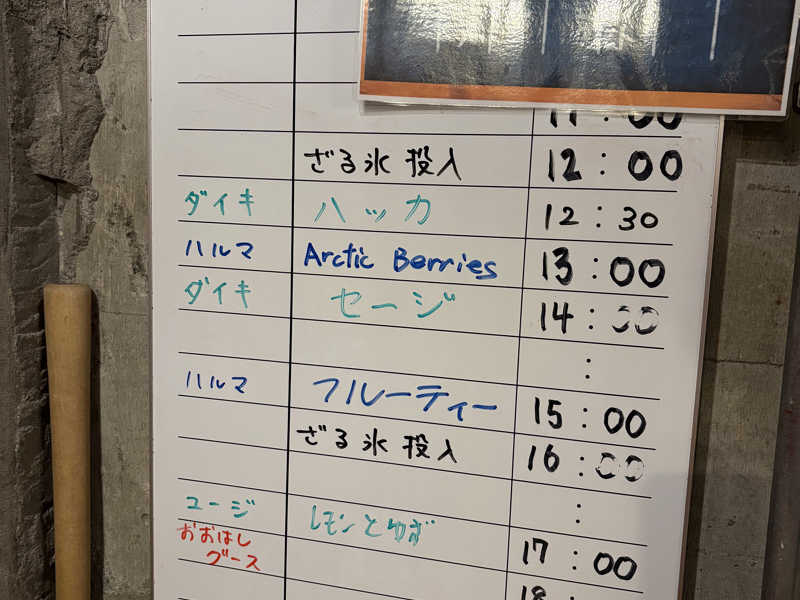 11:00
ざる氷 投入 12:00
ダイキ ハッカ 12:30
ハルマ Arctic Berries 13:00
ダイキ セージ 14:00
:
ハルマ フルーティー 15:00
ざる氷 投入 16:00
:
ユージ レモンとゆず 17:00
おおはし
グース
18: